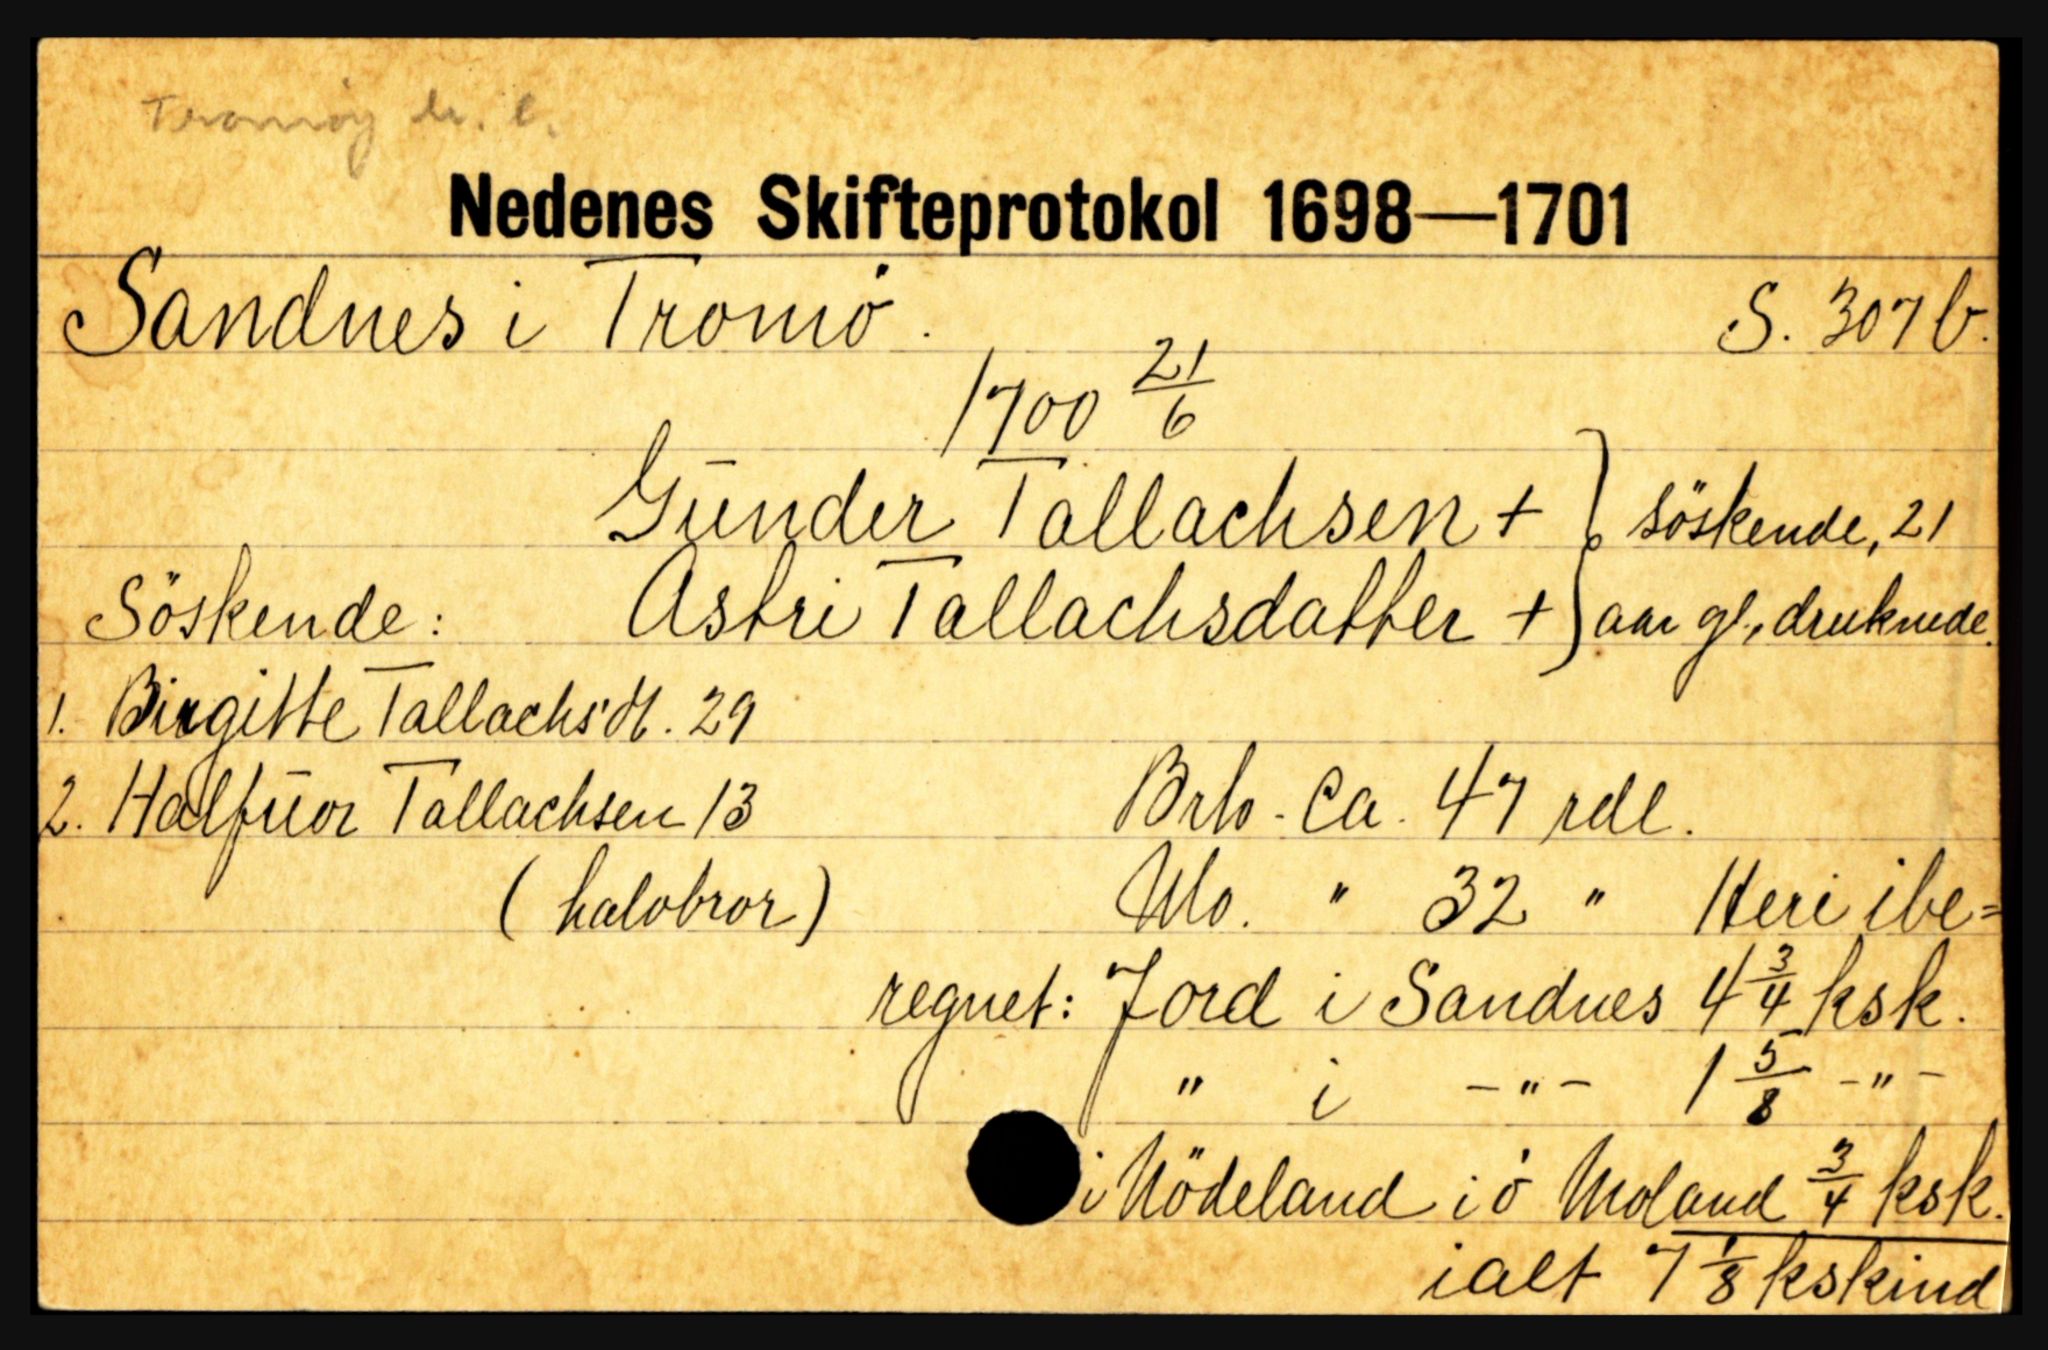 Tromøy
Nedenes Skifteprotokol 1698—1701
Sandnes i Tromö. S. 307 b.
1700 21/6
Gunder Tallachsen + } söskende, 21
Söskende: Astri Tallachsdatter + } aar gl., druknede.
1. Birgitte Tallachsdt. 29
2. Halfuor Tallachsen 13 Brb. ca. 47 rdl.
(halvbror) Nlo. " 32 " Heri ibe=
regnet: Jord i Sandnes 4 3/4 ksk.
" i -"- 1 5/8 -"-
i Nödeland i ö Moland 3/4 ksk.
ialt 7 1/8 kskind